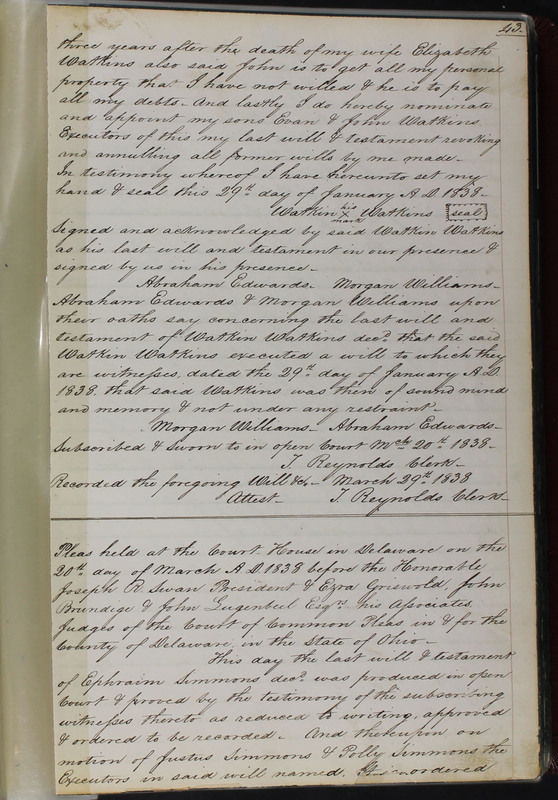 43.
three years after the death of my wife Elizabeth
Watkins also said John is to get all my personal
property that I have not willed & he is to pay
all my debts - And lastly I do hereby nominate
and appoint my sons Evan & John Watkins
Executors of this my last will & testament revoking
and annulling all former wills by me made -
In testimony whereof I have hereunto set my
hand & seal this 29th day of January A D. 1838 -
Watkin his X mark Watkins seal
Signed and acknowledged by said Watkin Watkins
as his last will and testament in our presence &
signed by us in his presence -
Abraham Edwards - Morgan Williams -
Abraham Edwards & Morgan Williams upon
their oaths say concerning the last will and
testament of Watkin Watkins decd. that the said
Watkin Watkins executed a will to which they
are witnesses, dated the 29th day of January A.D.
1838. that said Watkins was then of sound mind
and memory & not under any restraint -
Morgan Williams - Abraham Edwards -
Subscribed & Sworn to in open Court Mch 20th 1838 -
T. Reynolds Clerk -
Recorded the foregoing Will &c. - March 29th 1838
Attest - T. Reynolds Clerk -
Pleas held at the Court House in Delaware on the
20th day of March A D. 1838 before the Honorable
Joseph R. Swan President & Ezra Griswold, John
Brundige & John Lugenbeel Esqrs. his Associates
Judges of the Court of Common Pleas in & for the
County of Delaware, in the State of Ohio -
This day the last will & testament
of Ephraim Simmons decd. was produced in open
Court & proved by the testimony of the subscribing
witnesses thereto as reduced to writing, approved
& ordered to be recorded - And thereupon on
motion of Justus Simmons & Polly Simmons the
Executors in said will named, ordered